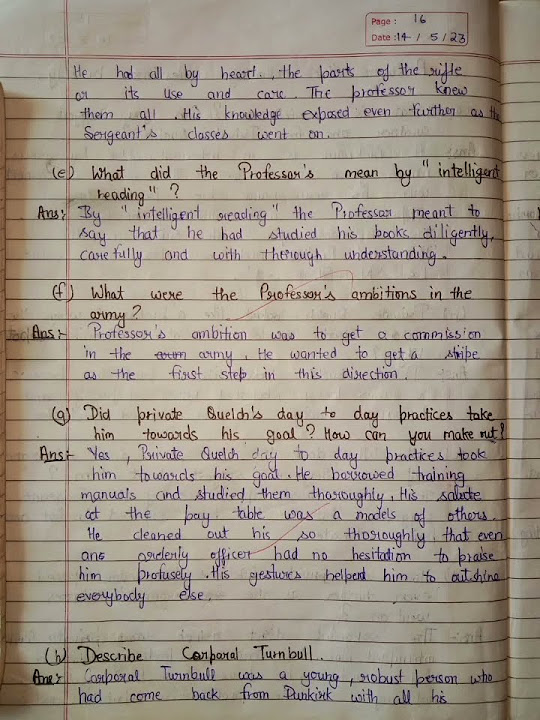 Page : 16
Date : 14 / 5 / 23
He had all by heart, the parts of the rifle
or its use and care. The professor knew
them all. His knowledge exposed even further as the
Sergeant's classes went on.
(e) What did the Professor's mean by "intelligent
reading" ?
Ans:- By "intelligent reading" the Professor meant to
say that he had studied his books diligently,
carefully and with thorough understanding.
(f) What were the Professor's ambitions in the
army?
Ans:- Professor's ambition was to get a commission
in the army. He wanted to get a stripe
as the first step in this direction.
(g) Did private Quelch's day to day practices take
him towards his goal? How can you make out?
Ans:- Yes, Private Quelch day to day practices took
him towards his goal. He borrowed training
manuals and studied them thoroughly. His salute
at the pay table was a models of others.
He cleaned out his so thoroughly that even
an orderly officer had no hesitation to praise
him profusely. His gestures helped him to outshine
everybody else.
(h) Describe Corporal Turnbull.
Ans:- Corporal Turnbull was a young, robust person who
had come back from Dunkirk with all his